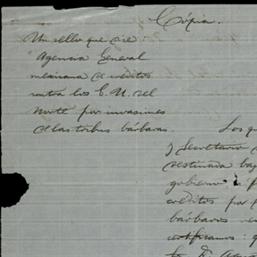 Cópia.
Un sello que dice
"Agencia General
mexicana de créditos
contra los E. U. del
Norte por invasiones
de las tribus bárbaras.
Los q
y Secretario
destinada ba
gobierno á
créditos por
bárbaros
certificamos: q